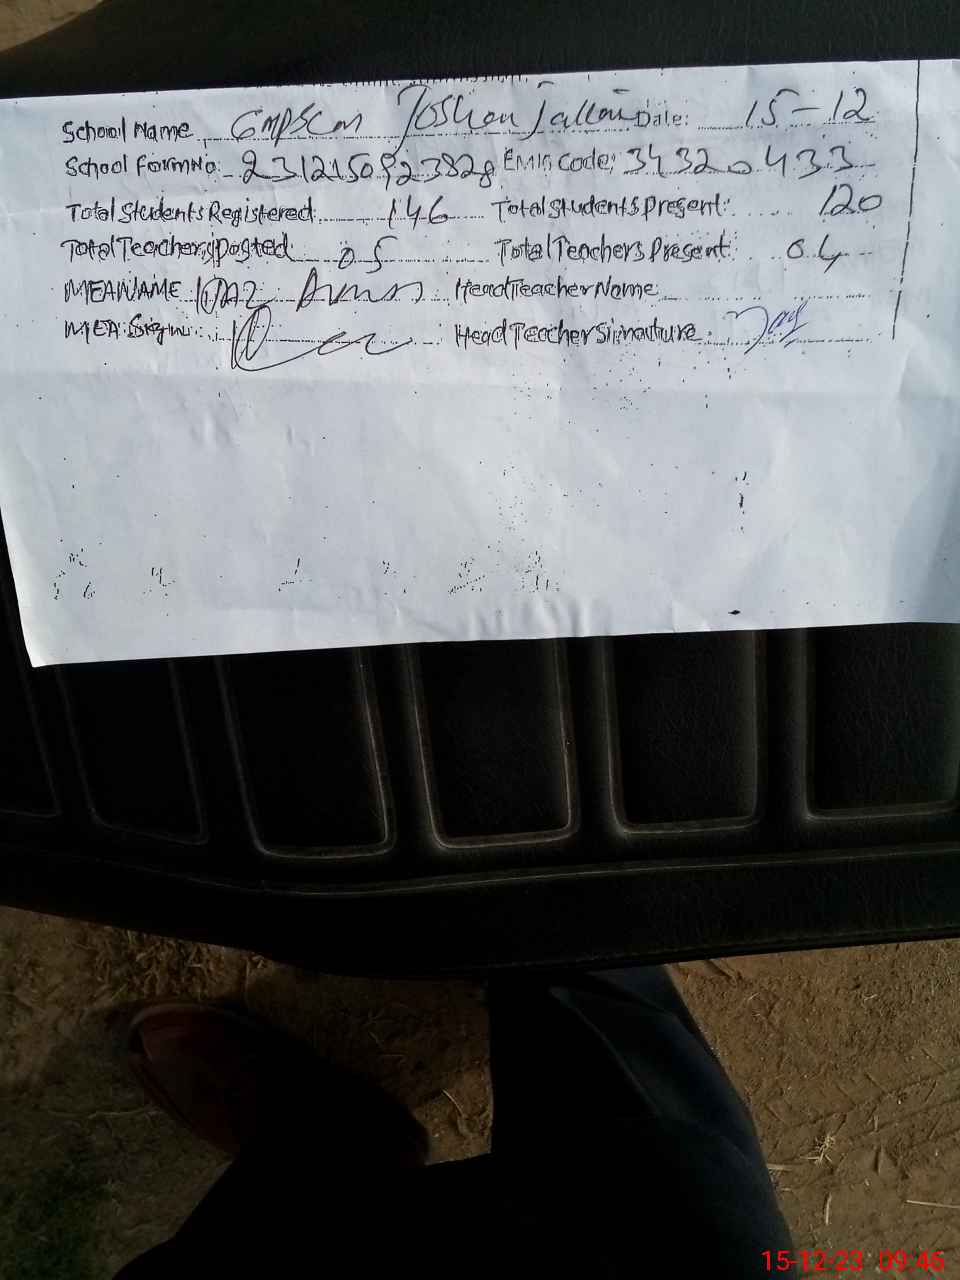 School Name GMPSCM Date: 15-12
School Form No: 2312150923828 EMIS Code: 34320433
Total Students Registered: 146 Total Students Present: 120
Total Teachers Posted: 05 Total Teachers Present: 04
MEA NAME Head Teacher Name
MEA Sign: Head Teacher Signature:
15-12-23 09:46